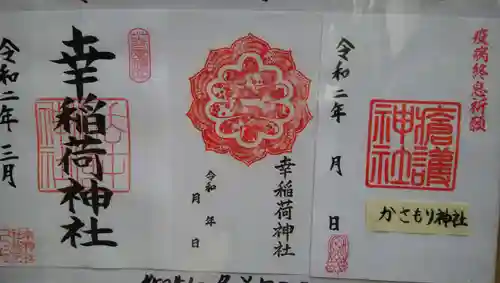 令和二年 三月
幸稲荷神社
令和 年
月 日
幸稲荷神社
令和二年 月 日
疫病終息祈願
瘡護
神社
かさもり神社